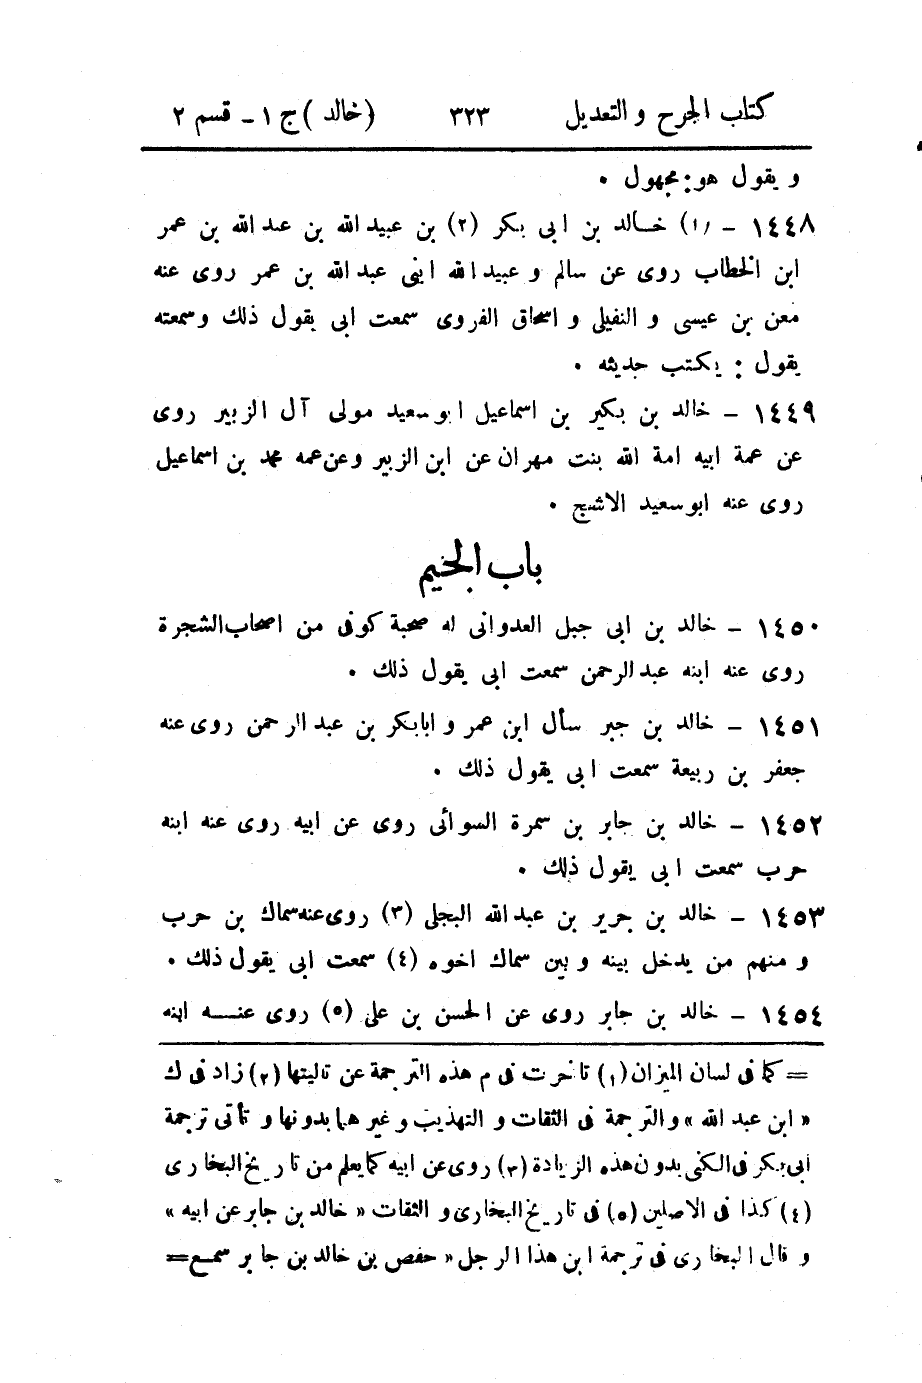 كتاب الجرح و التعديل ٣٢٣ (خالد) ج ١ - قسم ٢
و يقول هو: مجهول .
١٤٤٨ - (١) خالد بن ابى بكر (٢) بن عبيد الله بن عبد الله بن عمر
ابن الخطاب روى عن سالم و عبيد الله ابنى عبد الله بن عمر روى عنه
معن بن عيسى و النفيلى و اسحاق الفروى سمعت ابى يقول ذلك وسمعته
يقول : يكتب حديثه .
١٤٤٩ - خالد بن بكير بن اسماعيل ابو سعيد مولى آل الزبير روى
عن عمة ابيه امة الله بنت مهران عن ابن الزبير وعن عمه محمد بن اسماعيل
روى عنه ابو سعيد الاشج .
باب الجيم
١٤٥٠ - خالد بن ابى جبل العدوانى له صحبة كوفى من اصحاب الشجرة
روى عنه ابنه عبد الرحمن سمعت ابى يقول ذلك .
١٤٥١ - خالد بن جبر سأل ابن عمر و ابا بكر بن عبد الرحمن روى عنه
جعفر بن ربيعة سمعت ابى يقول ذلك .
١٤٥٢ - خالد بن جابر بن سمرة السوائى روى عن ابيه روى عنه ابنه
حرب سمعت ابى يقول ذلك .
١٤٥٣ - خالد بن جرير بن عبد الله البجلى (٣) روى عنه سماك بن حرب
و منهم من يدخل بينه و بين سماك اخوه (٤) سمعت ابى يقول ذلك .
١٤٥٤ - خالد بن جابر روى عن الحسن بن على (٥) روى عنه ابنه
= كما فى لسان الميزان (١) تأخرت فى م هذه الترجمة عن تاليتها (٢) زاد فى ك
« ابن عبد الله » والترجمة فى الثقات و التهذيب و غيرهما بدونها و تأتى ترجمة
ابى بكر فى الكنى بدون هذه الزيادة (٣) روى عن ابيه كما يعلم من تاريخ البخارى
(٤) كذا فى الاصلين (٥) فى تاريخ البخارى و الثقات « خالد بن جابر عن ابيه »
و قال البخارى فى ترجمة ابن هذا الرجل « حفص بن خالد بن جابر سمع =